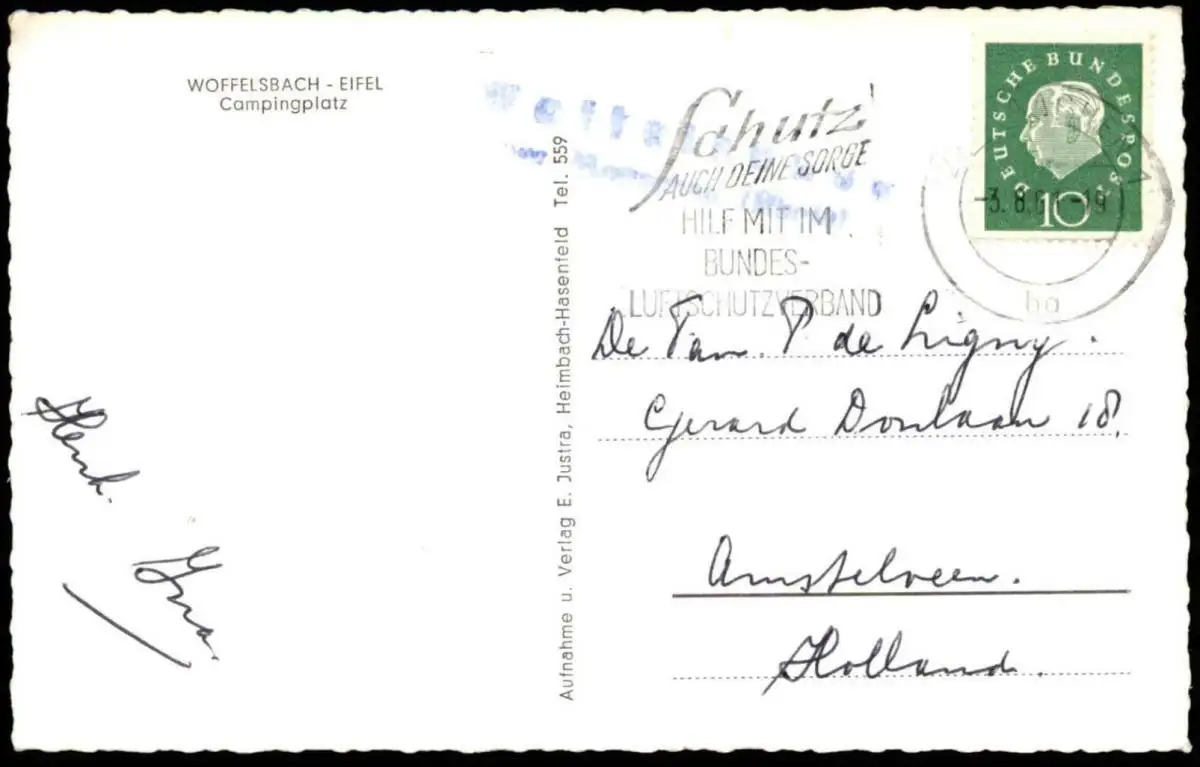 WOFFELSBACH - EIFEL
Campingplatz
Henk.
Ina.
Aufnahme u. Verlag E. Justra, Heimbach-Hasenfeld Tel. 559
Schutz
AUCH DEINE SORGE
HILF MIT IM
BUNDES-
LUFTSCHUTZVERBAND
DEUTSCHE BUNDESPOST
10
-3.8.61-19
ba
De Fam. P de Ligny.
Gerard Doulaan 18.
Amstelveen.
Holland.